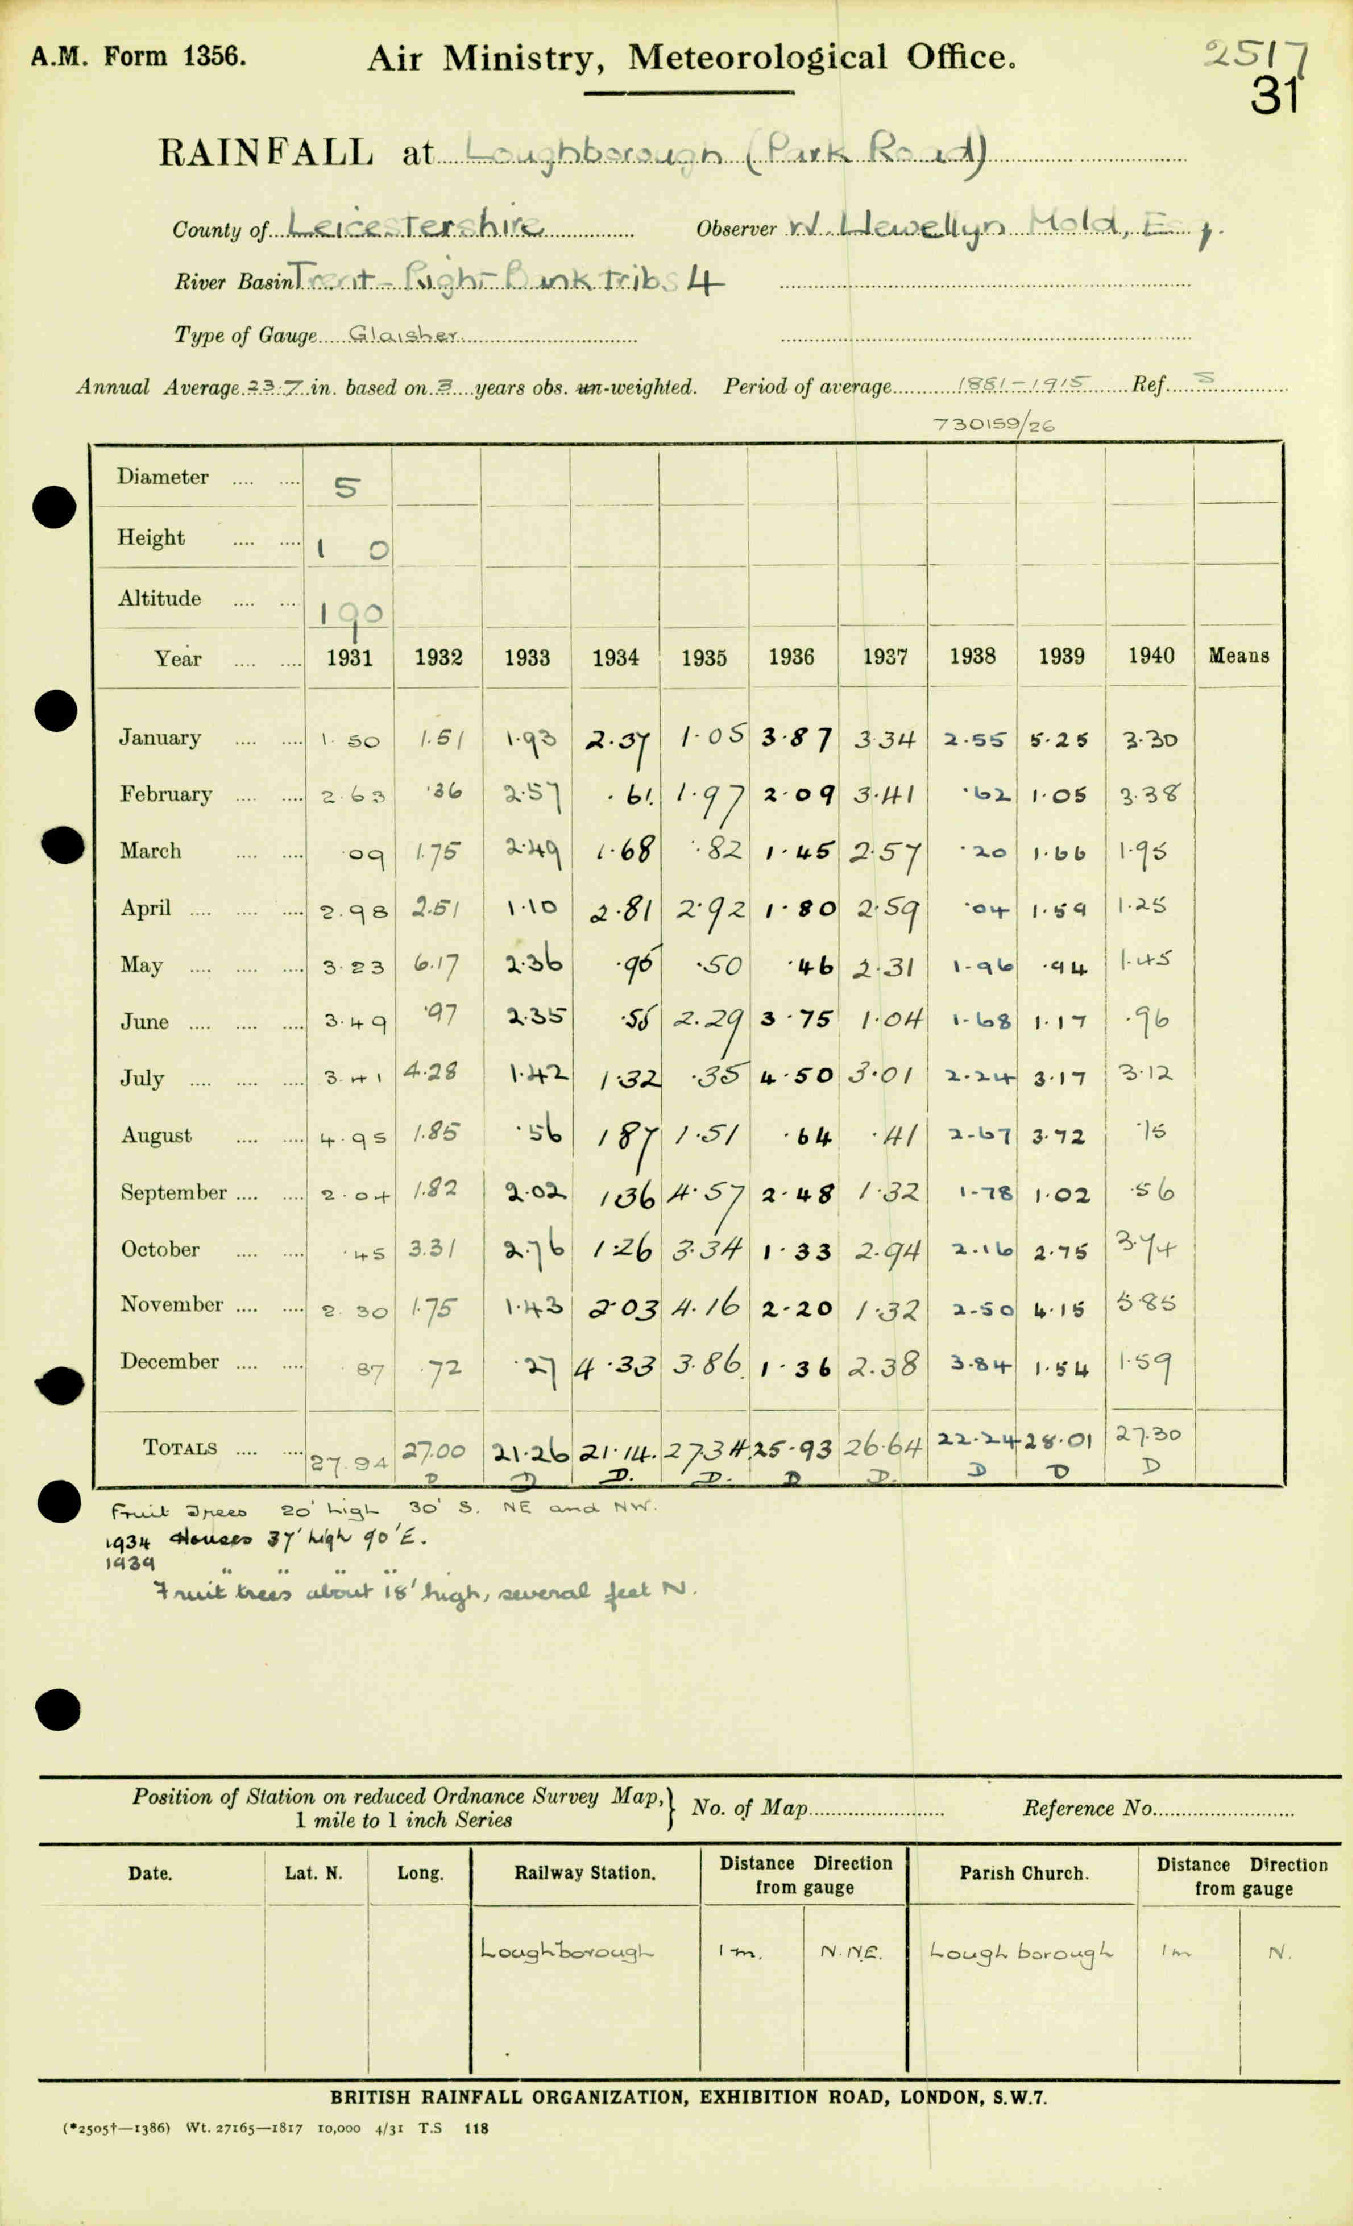 A.M. Form 1356. Air Ministry, Meteorological Office. 2517
31
RAINFALL at Loughborough (Park Road)
County of Leicestershire Observer W. Llewellyn Mold, Esq.
River Basin Trent - Right Bank tribs 4
Type of Gauge Glaisher
Annual Average 23.7 in. based on 3 years obs. un-weighted. Period of average 1881-1915 Ref. S
730159/26
Diameter .... .... 5
Height .... .... 1 0
Altitude .... .... 190
Year .... .... 1931 1932 1933 1934 1935 1936 1937 1938 1939 1940 Means
January .... .... 1.50 1.51 1.93 2.37 1.05 3.87 3.34 2.55 5.25 3.30
February .... .... 2.63 .36 2.57 .61 1.97 2.09 3.41 .62 1.05 3.38
March .... .... .09 1.75 2.49 1.68 .82 1.45 2.57 .20 1.66 1.95
April .... .... .... 2.98 2.51 1.10 2.81 2.92 1.80 2.59 .04 1.59 1.25
May .... .... .... 3.23 6.17 2.36 .95 .50 .46 2.31 1.96 .94 1.45
June .... .... .... 3.49 .97 2.35 .55 2.29 3.75 1.04 1.68 1.17 .96
July .... .... .... 3.41 4.28 1.42 1.32 .35 4.50 3.01 2.24 3.17 3.12
August .... .... 4.95 1.85 .56 1 87 1.51 .64 .41 2.67 3.72 .15
September .... .... 2.04 1.82 2.02 1 36 4.57 2.48 1.32 1.78 1.02 .56
October .... .... .45 3.31 2.76 1.26 3.34 1.33 2.94 2.16 2.75 3.74
November .... .... 2.30 1.75 1.43 2.03 4.16 2.20 1.32 2.50 4.15 5.85
December .... .... .87 .72 .27 4.33 3.86 1.36 2.38 3.84 1.54 1.59
TOTALS .... .... 27.94 27.00 21.26 21.14. 27.34 25.93 26.64 22.24 28.01 27.30
D D D. D. D D. D D D
Fruit Trees 20' high 30' S. NE and NW.
1934 Houses 37' high 90' E.
1939 " " " "
Fruit trees about 18' high, several feet N.
Position of Station on reduced Ordnance Survey Map,} No. of Map Reference No.
1 mile to 1 inch Series
Date. Lat. N. Long. Railway Station. Distance Direction from gauge Parish Church. Distance Direction from gauge
Loughborough 1 m. N.NE. Loughborough 1 m N.
BRITISH RAINFALL ORGANIZATION, EXHIBITION ROAD, LONDON, S.W.7.
(*2505†—1386) Wt. 27165—1817 10,000 4/31 T.S 118